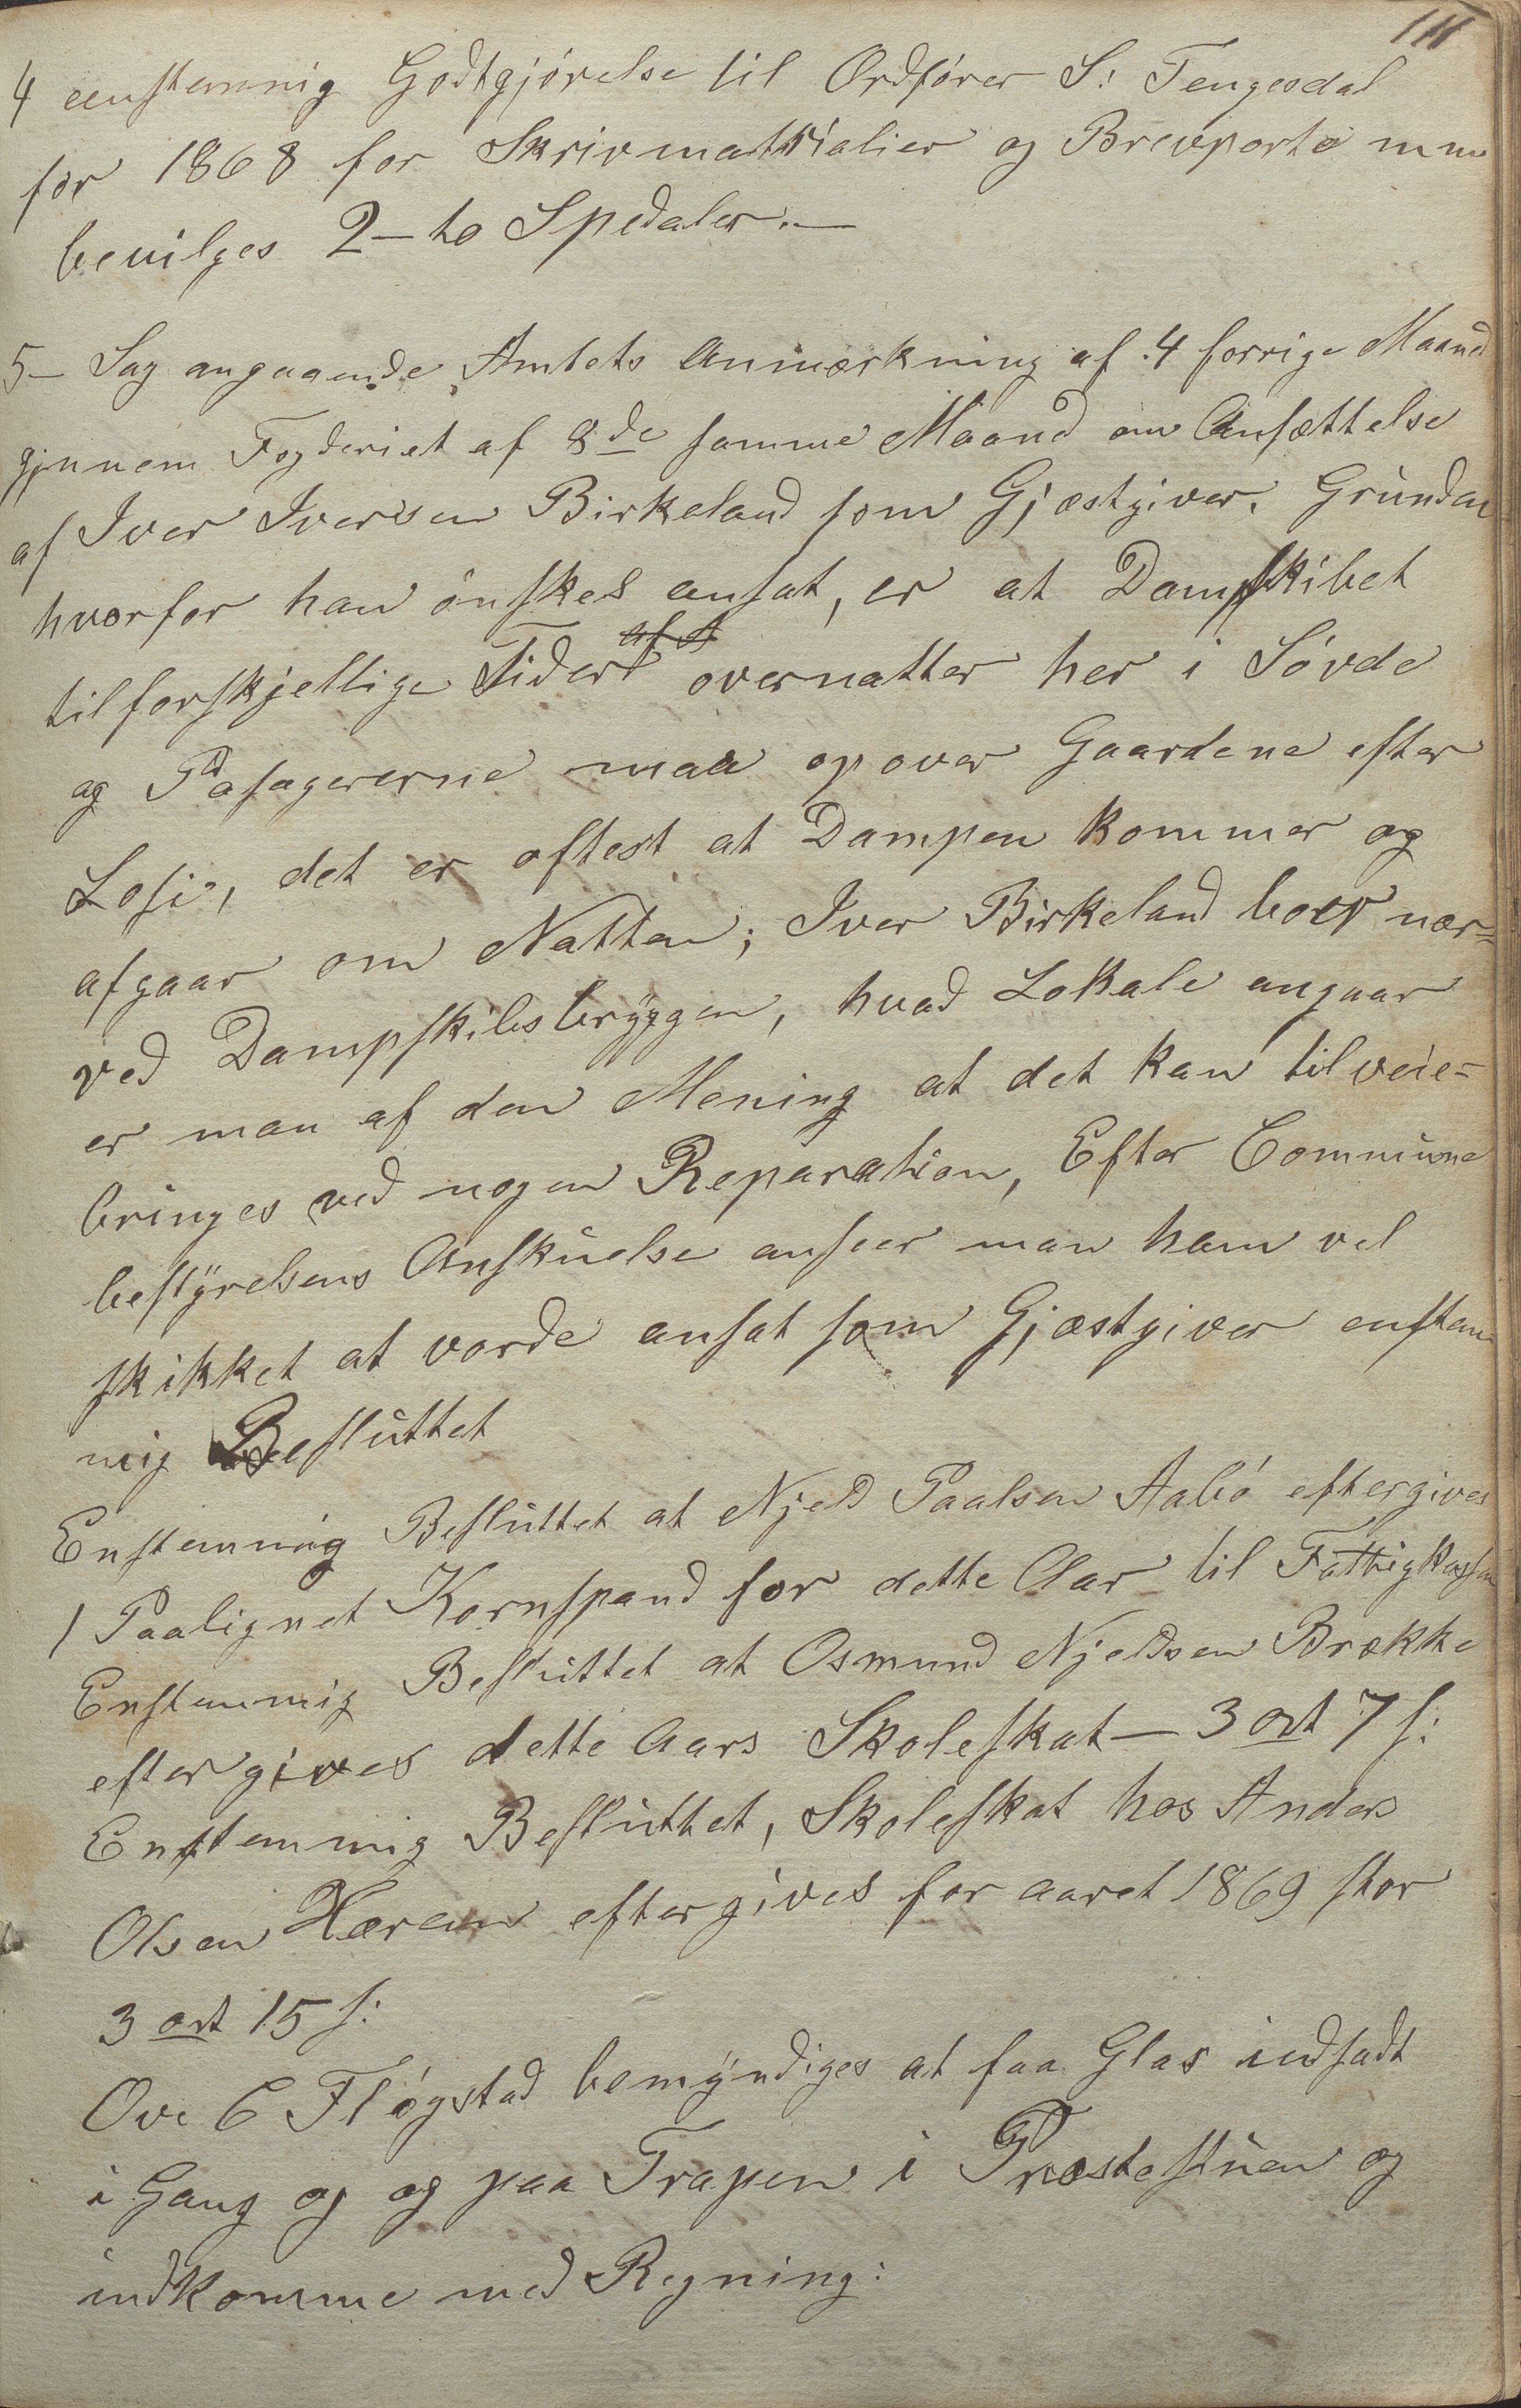 111
4 eenstemmig Godtgjörelse til Ordförer S: Tengesdal
for 1868 for Skrivmatrialier og Brevporto mm
bevilges 2 - to Spedaler. —
5 - Sag angaaende Amtets Anmærkning af 4 forrige Maaned
gjennem Fogderiet af 8de samme Maaned om Ansættelse
af Iver Iversen Birkeland som Gjæstgiver. Grunden
hvorfor han önskes ansat, er at Dampskibet
til forskjellige Tider overnatter her i Sövde
og Pasagererne maa op over Gaardene efter
Losi, det er oftest at Dampen kommer og
afgaar om Natten; Iver Birkeland boer nær-
ved Dampskibsbryggen, hvad Lokale angaar
er man af den Mening at det kan tilveie-
bringes ved nogen Reparation, Efter Commune
bestyrelsens Anskuelse anseer man ham vel
skikket at vorde ansat som Gjæstgiver enstem
mig Besluttet
Enstemmig Besluttet at Njeld Paalsen Aabö eftergives
1 Paalignet Kornspand for dette Aar til Fattigkassen
Enstemmig Besluttet at Osmund Njeldsen Brække
eftergives dette Aars Skoleskat - 3 ort 7 s:
Enstemmig Besluttet, Skoleskat hos Anders
Olsen Hæreim eftergives for aaret 1869 stor
3 ort 15 s:
Ove C Flögstad bemyndiges at faa Glas indsadt
i Gang og og paa Trapen i Præstestuen og
indkomme med Regning: